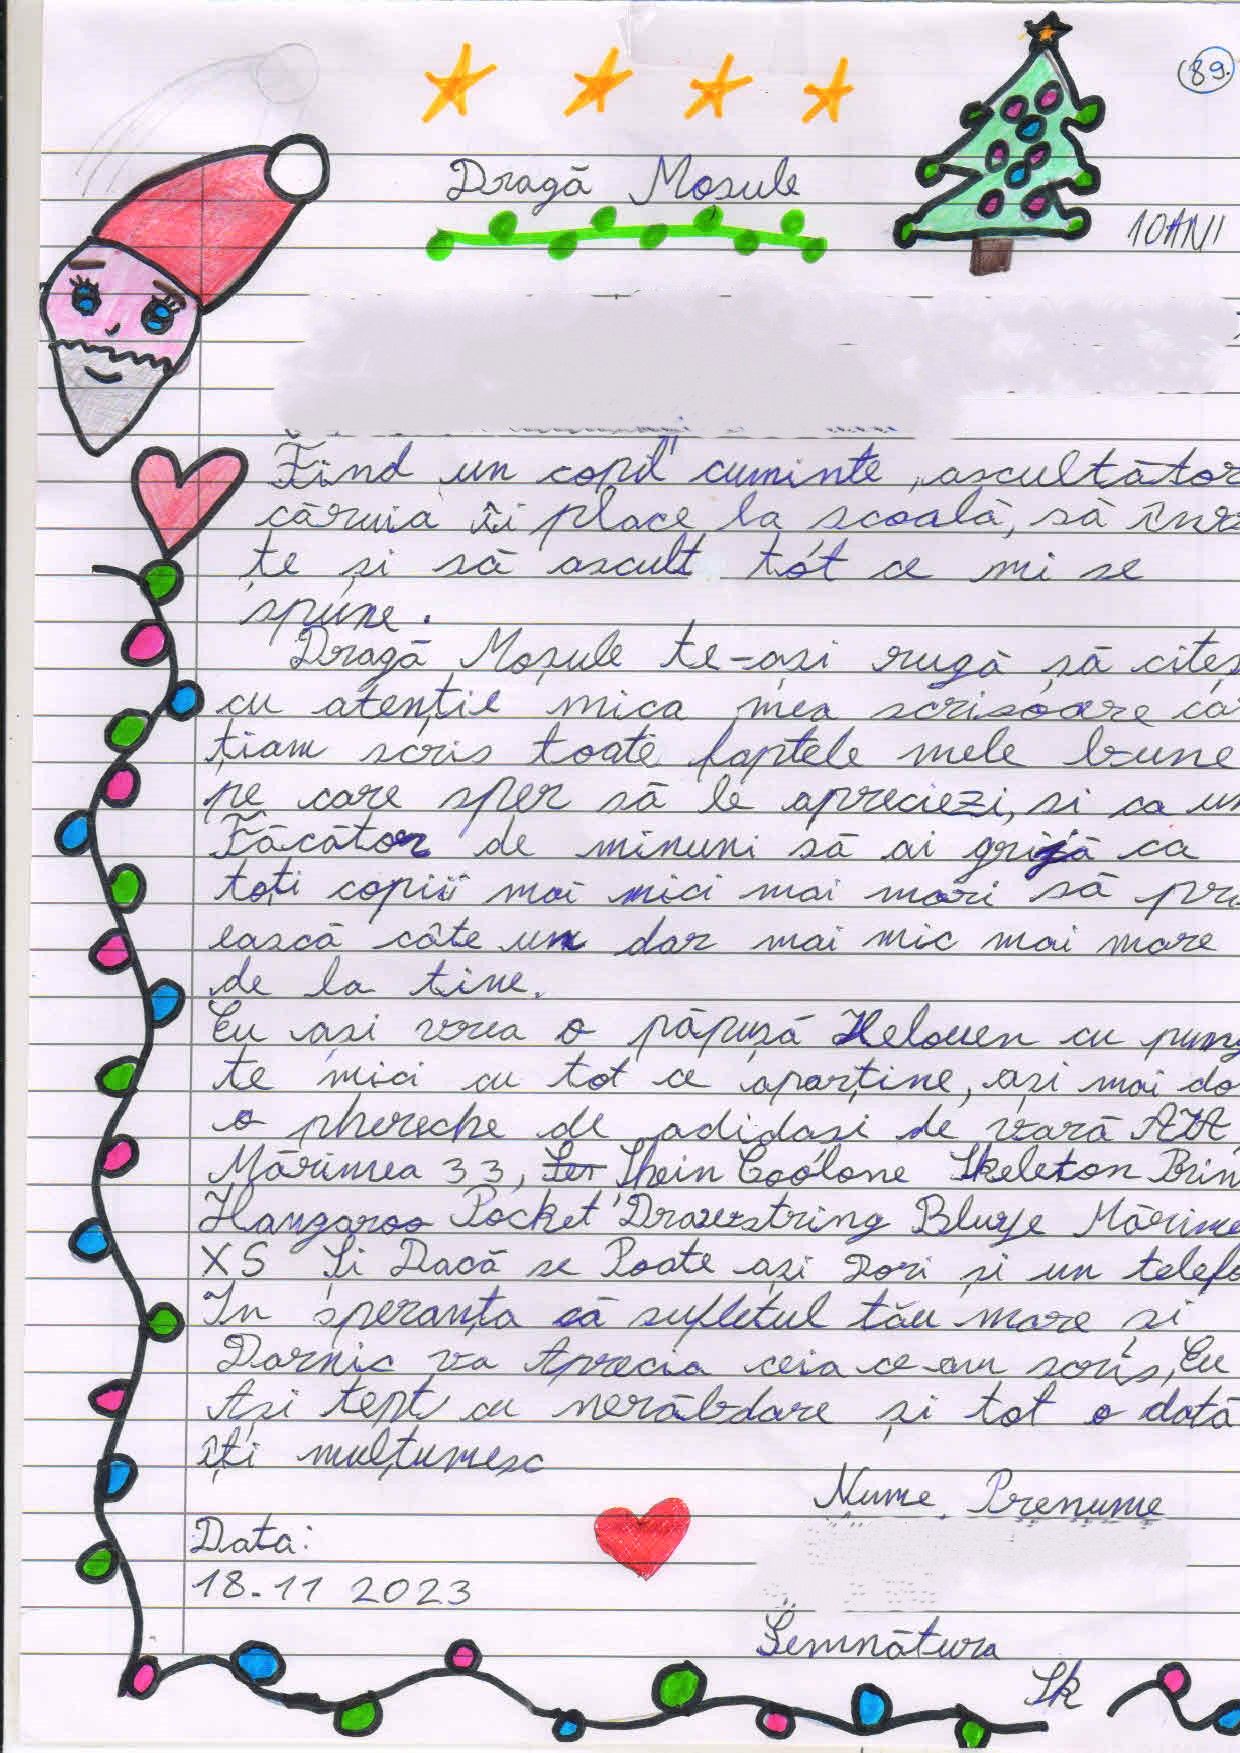 89.
Dragă Moșule
10 ANI
Find un copil cuminte, ascultător
căruia îi place la scoală, să înve
te și să ascult tot ce mi se
spune.
Dragă Moșule te-ași rugă să citeș
cu atenție mica mea scrisoare că
țiam scris toate faptele mele bune
pe care sper să le apreciezi, si ca un
Făcător de minuni să ai grijă ca
toți copii mai mici mai mari să pri
ească câte un dar mai mic mai mare
de la tine.
Eu ași vrea o păpușă Helouen cu pung
te mici cu tot ce aparține, ași mai do
ophereche de adidași de vară
Mărimea 33, Shein Coolone Skeleton Prin
Kangaroo Pocket Drawstring Bluze Mărime
XS Și Dacă se Poate ași Dori și un telefo
In speranța că sufletul tău mare si
Darnic va Aprecia ceia ce am scris, Eu
Ași tept cu nerăbdare și tot o dată
îți mulțumesc
Nume Prenume
Data:
18.11 2023
Semnătura